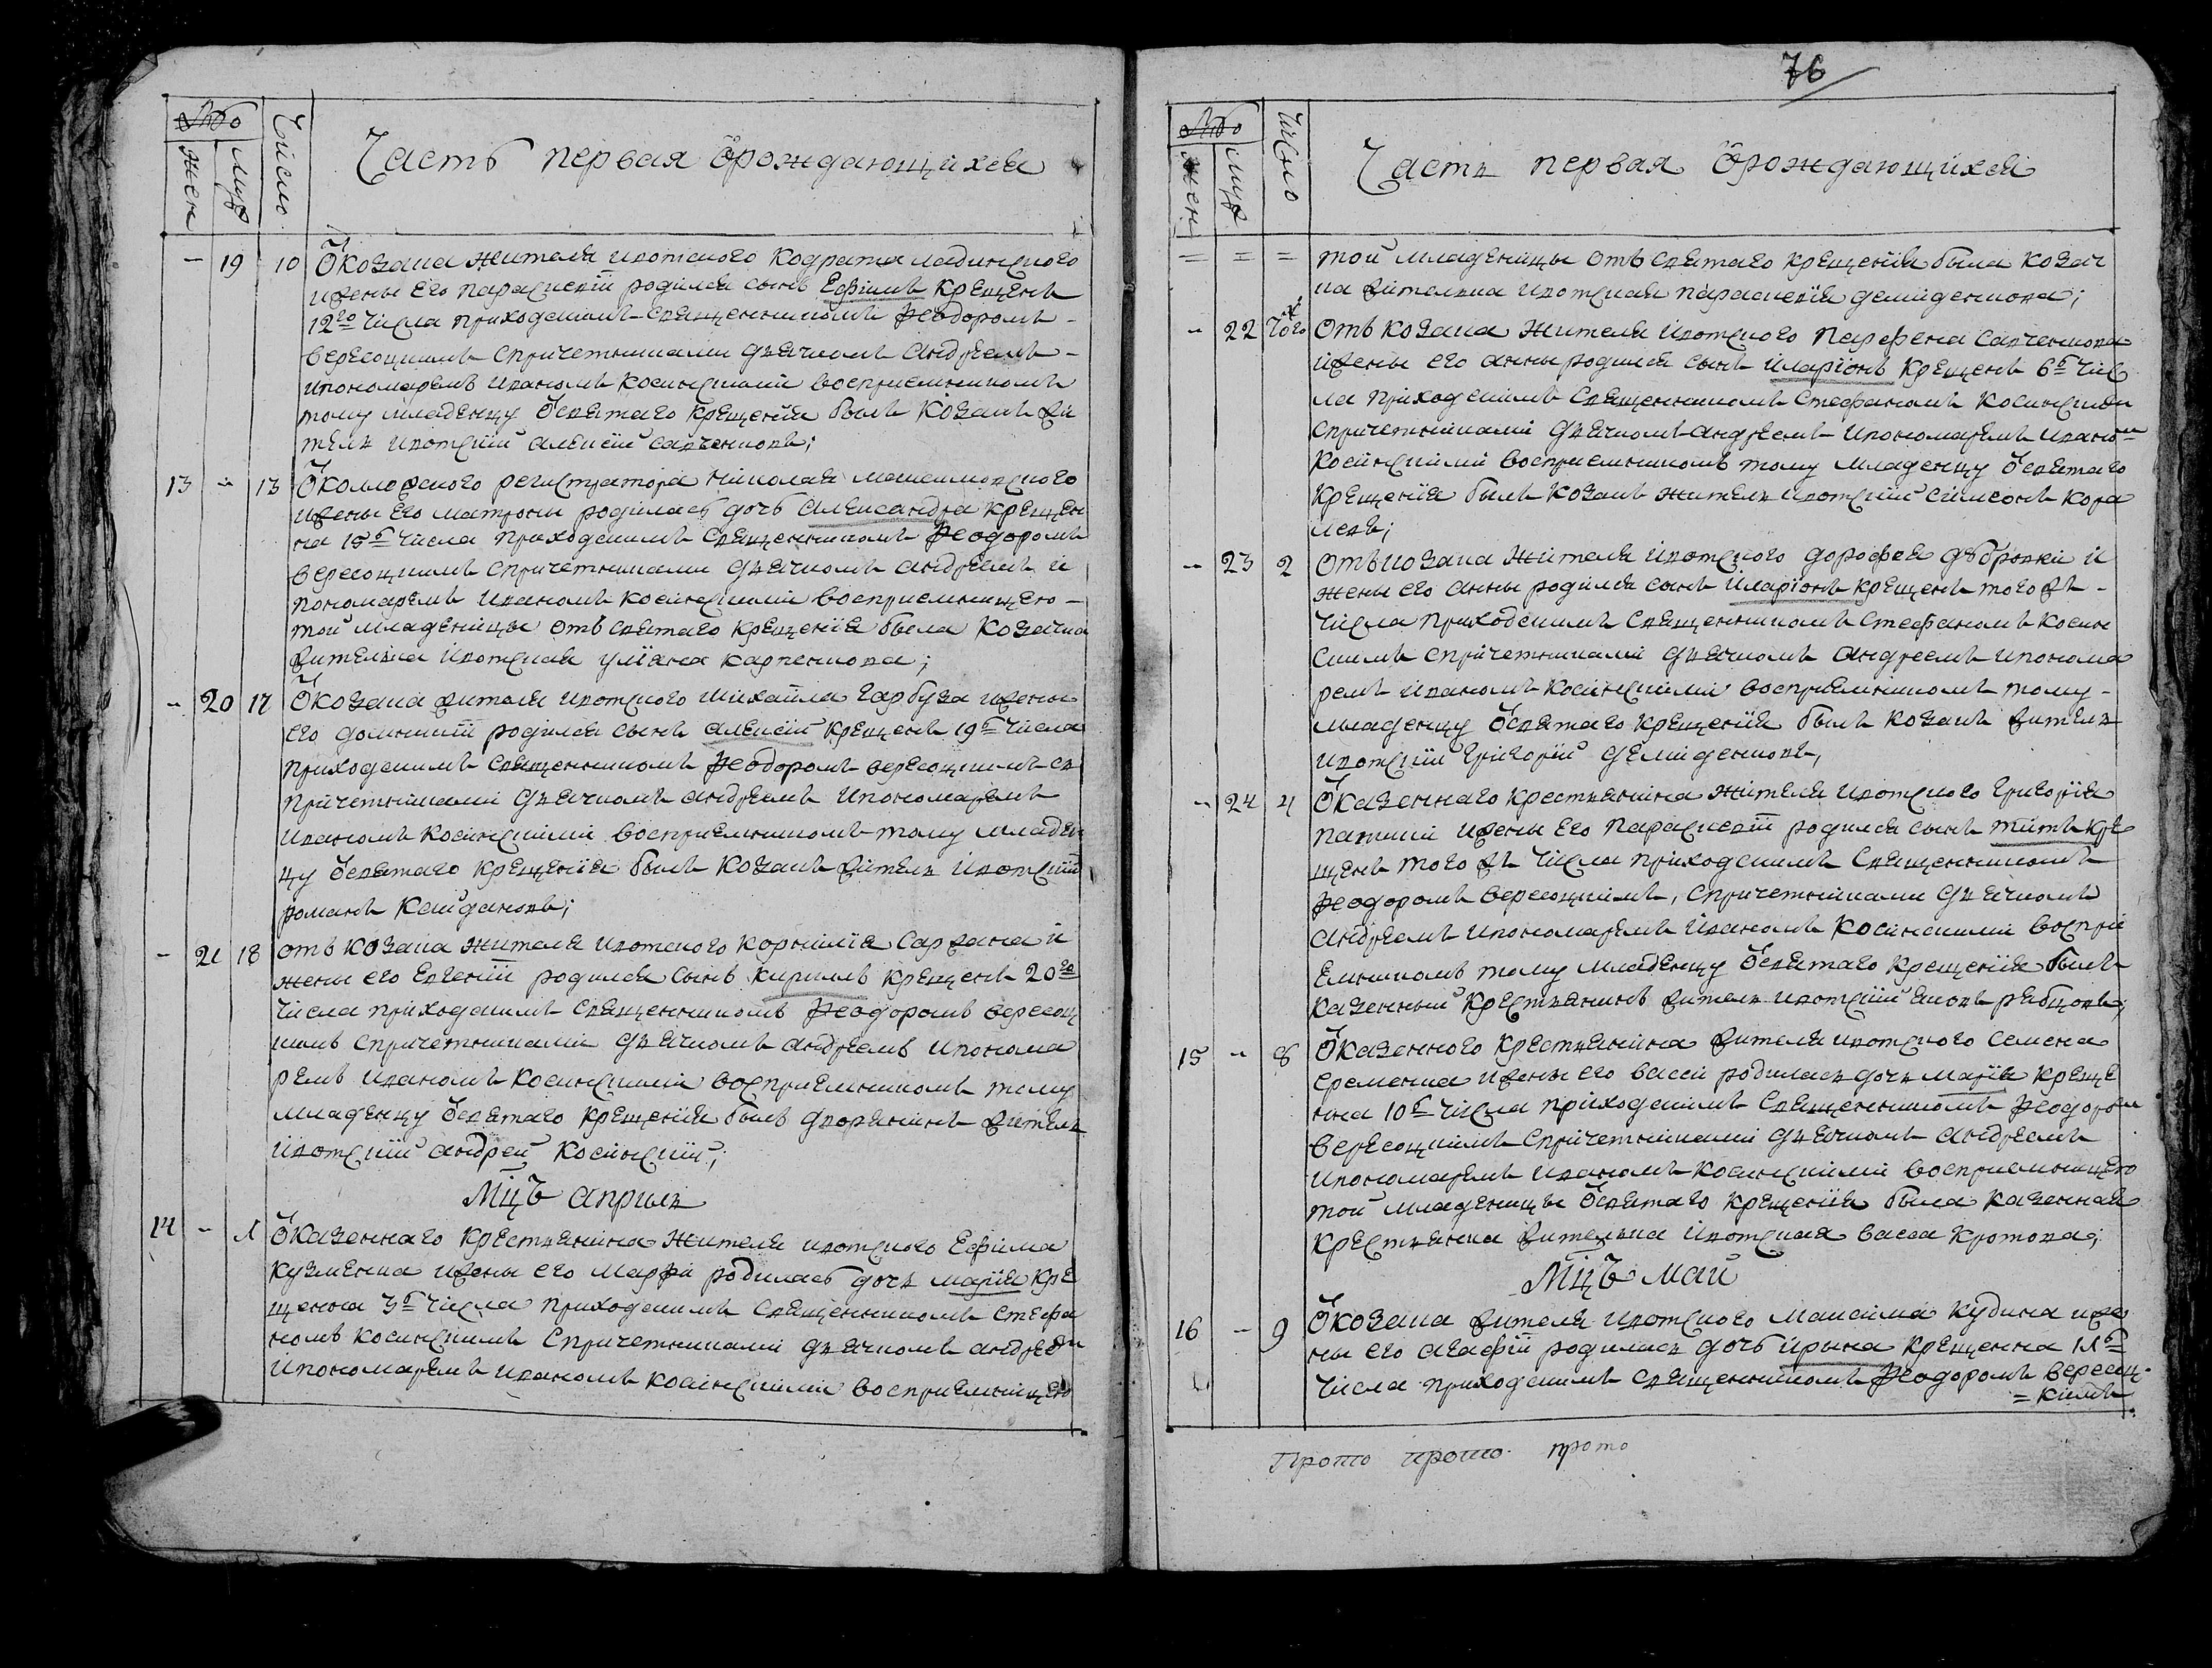 Число
жен муж
Часть первая ѿрождающихся
- 19 10 Ѿ козака жителя ивотского Кодрата Ладинского
и жены его Параскевïи родился сынъ Ефимъ крещенъ
12го числа приходскимъ священникомъ Ѳеодоромъ
Вересоцкимъ с причетниками дьячкомъ Андреемъ
и пономаремъ Иваномъ Косинскими восприемникомъ
тому младенцу ѿ святаго крещенïя былъ козакъ жи
тель ивотскïй Алексïй Савченковъ;
13 - 13 Ѿ коллежского регистратора Николая Максимовского
и жены его Матроны родилась дочь Александра креще
на 15г числа приходскимъ священникомъ Ѳеодоромъ
Вересоцкимъ с причетниками дьячкомъ Андреемъ и
пономаремъ Иваномъ Косинскими восприемницею
той младеницы отъ святаго крещенïя была козачка
жителька ивотская Улïяна Карпенкова;
- 20 17 Ѿ козака жителя ивотского Михайла Гарбуза и жены
его Домникïи родился сынъ Алексïй крещенъ 19г числа
приходскимъ священникомъ Ѳеодоромъ Вересоцкимъ съ
причетниками дьячкомъ Андреемъ и пономаремъ
Иваномъ Косинскими восприемникомъ тому младен
цу ѿ святаго крещенïя былъ козакъ житель ивотскïй
Романъ Кайдановъ;
- 21 18 отъ козака жителя ивотского Корнилïя Саржана и
жены его Евгенïи родился сынъ Кирилъ крещенъ 20го
числа приходскимъ священникомъ Ѳеодоромъ Вересоц
кимъ с причетниками дьячкомъ Андреемъ и понома
ремъ Иваномъ Косинскими восприемникомъ тому
младенцу ѿ святаго крещенïя былъ дворянинъ житель
ивотскïй Андрей Косинскïй;
Мцъ Априль
14 - 1 Ѿ казеннаго крестьянина жителя ивотского Ефима
Кузменка и жены его Марѳи родилась дочь Марïя кре
щенна 3г числа приходскимъ священникомъ Стефа
номъ Косинскимъ с причетниками дьячкомъ Андреем
и пономаремъ Иваномъ Косинскими восприемницею
76
Число
жен муж
Часть первая ѿрождающихся
= = = той младеницы отъ святаго крещенïя была козач
ка жителька ивотская Параскевïя Демиденкова;
- 22 того отъ козака жителя ивотского Парфена Савченкова
и жены его Анны родился сынъ Иларïонъ крещенъ 6г чис
ла приходскимъ священникомъ Стефаномъ Косинским
с причетниками дьячкомъ Андреемъ и пономаремъ Ивано
Косинскими восприемникомъ тому младенцу ѿ святаго
крещенïя былъ козакъ житель ивотскïй Симеонъ Кора
левъ;
- 23 2 отъ козака жителя ивотского Дорофея Дубровки и
жены его Анны родился сынъ Иларïонъ крещенъ того жъ
числа приходскимъ священникомъ Стефаномъ Косин
скимъ с причетниками дьячкомъ Андреемъ и понома
ремъ Иваномъ Косинскими восприемникомъ тому
младенцу ѿ святаго крещенïя былъ козакъ житель
ивотскïй Григорïй Демиденковъ,
- 24 4 Ѿ казеннаго крестьянина жителя ивотского Григорïя
и жены его Параскевïи родился сынъ Титъ кре
щенъ того жъ числа приходскимъ священникомъ
Ѳеодоромъ Вересоцкимъ, с причетниками дьячкомъ
Андреемъ и пономаремъ Иваномъ Косинскими воспри
емникомъ тому младенцу ѿ святаго крещенïя былъ
казенный крестьянинъ житель ивотскïй Яковъ Рябцовъ;
15 - 8 Ѿ казенного крестьянина жителя ивотского Семена
Еременка и жены его Васси родилась дочь Марïя креще
нна 10г числа приходскимъ священникомъ Ѳеодором
Вересоцкимъ с причетниками дьячкомъ Андреемъ
и пономаремъ Иваномъ Косинскими восприемницею
той младеницы ѿ святаго крещенïя была казенная
крестьянка жителька ивотская Васса Кротова;
Мцъ Май
16 - 9 Ѿ козака жителя ивотского Максима Кудина и же
ны его Агафïи родилась дочь Ирына крещенна 11г
числа приходскимъ священникомъ Ѳеодоромъ Вересоц
= кимъ
Прото прото прото